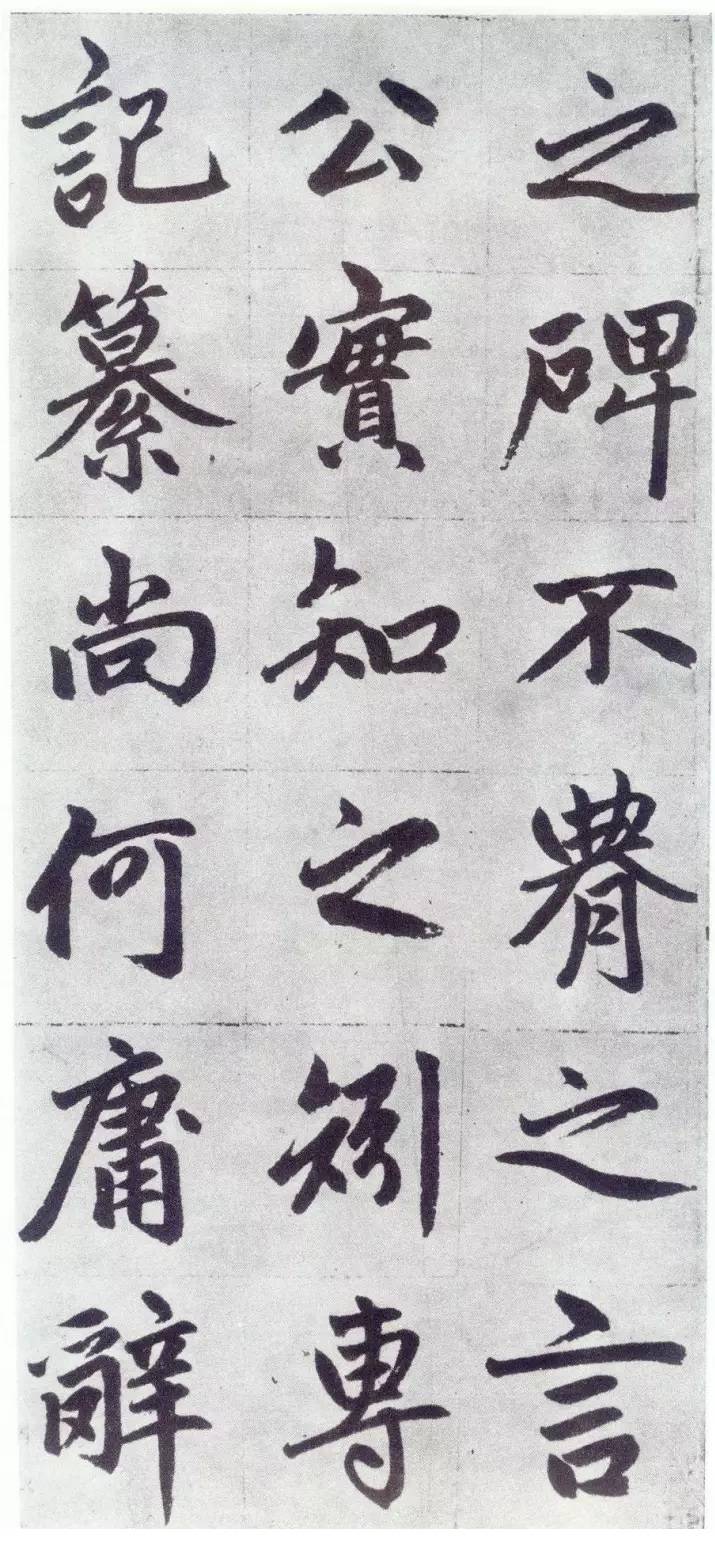 之碑不腆之言
公實知之矧專
記纂尚何庸辭